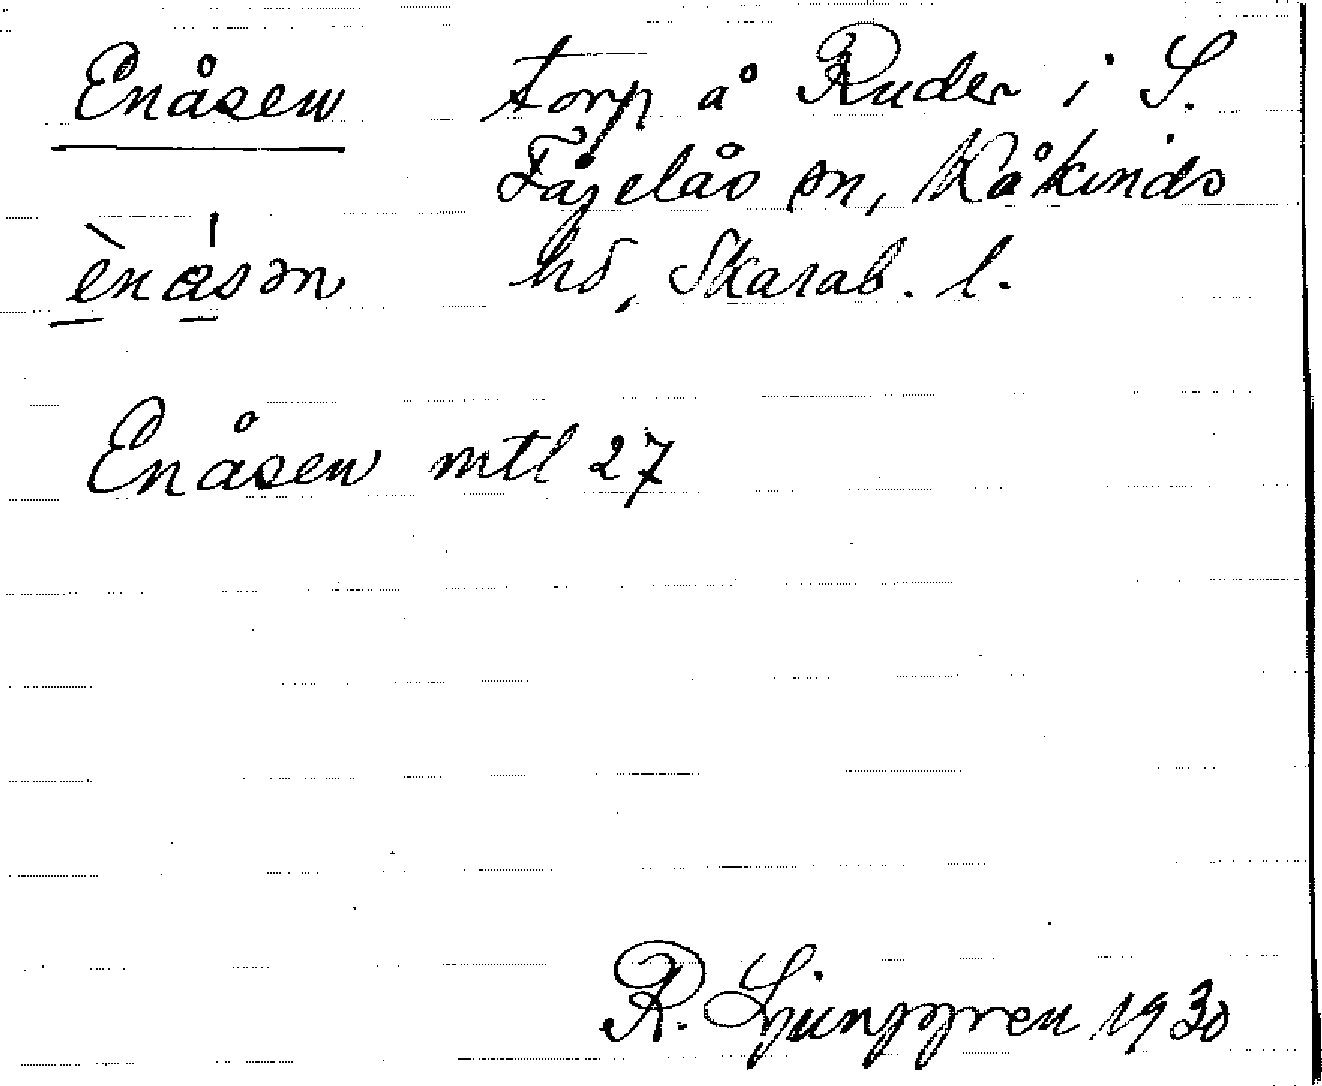 Enåsen torp å Ruder i S.
Fågelås sn, Kåkinds
ènásən hd, Skarab. l.
Enåsen mtl 27
R. Ljunggren 1930